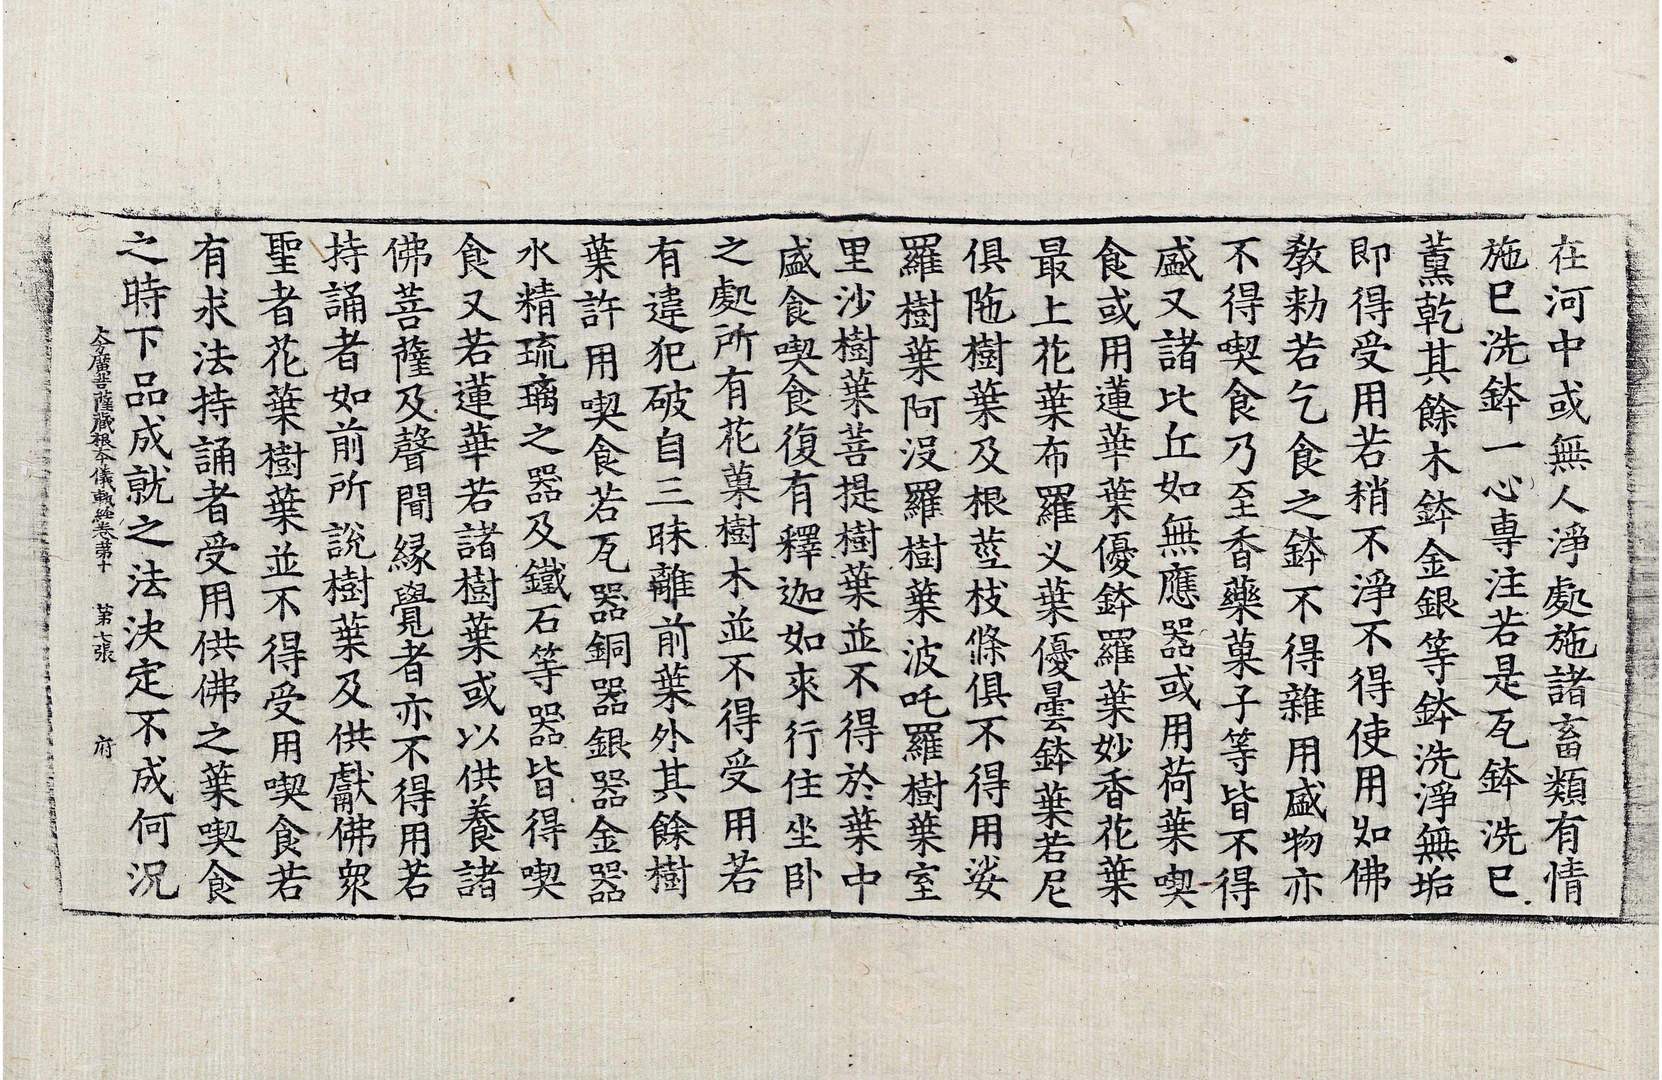 在河中或無人淨處施諸畜類有情
施已洗鉢一心專注若是瓦鉢洗已
薰乾其餘木鉢金銀等鉢洗淨無垢
即得受用若稍不淨不得使用如佛
教勑若乞食之鉢不得雜用盛物亦
不得喫食乃至香藥菓子等皆不得
盛又諸比丘如無應器或用荷葉喫
食或用蓮華葉優鉢羅葉妙香花葉
最上花葉布羅叉葉優曇鉢葉若尼
俱陁樹葉及根莖枝條俱不得用娑
羅樹葉阿沒羅樹葉波吒羅樹葉室
里沙樹葉菩提樹葉並不得於葉中
盛食喫食復有釋迦如來行住坐卧
之處所有花菓樹木並不得受用若
有違犯破自三昧離前葉外其餘樹
葉許用喫食若瓦器銅器銀器金器
水精琉璃之器及鐵石等器皆得喫
食又若蓮華若諸樹葉或以供養諸
佛菩薩及聲聞緣覺者亦不得用若
持誦者如前所說樹葉及供獻佛衆
聖者花葉樹葉並不得受用喫食若
有求法持誦者受用供佛之葉喫食
之時下品成就之法決定不成何況
大方廣菩薩藏根本儀軌經卷第十　第七張　府